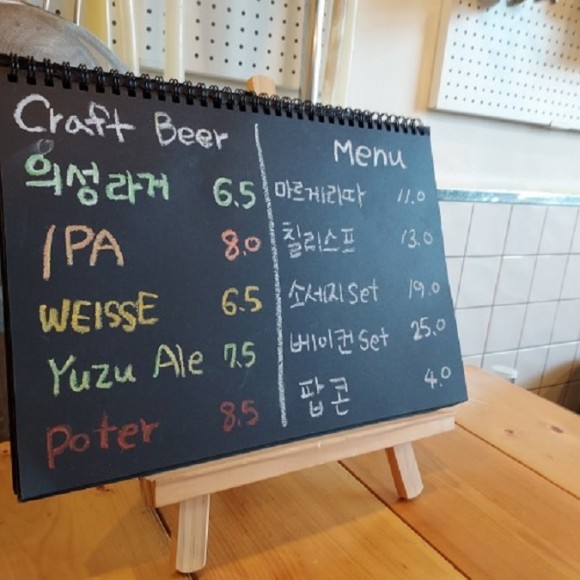 Craft Beer
의성라거 6.5
IPA 8.0
WEISSE 6.5
Yuzu Ale 7.5
poter 8.5
Menu
마르게리따 11.0
칠리스프 13.0
소세지 Set 19.0
베이컨 Set 25.0
팝콘 4.0